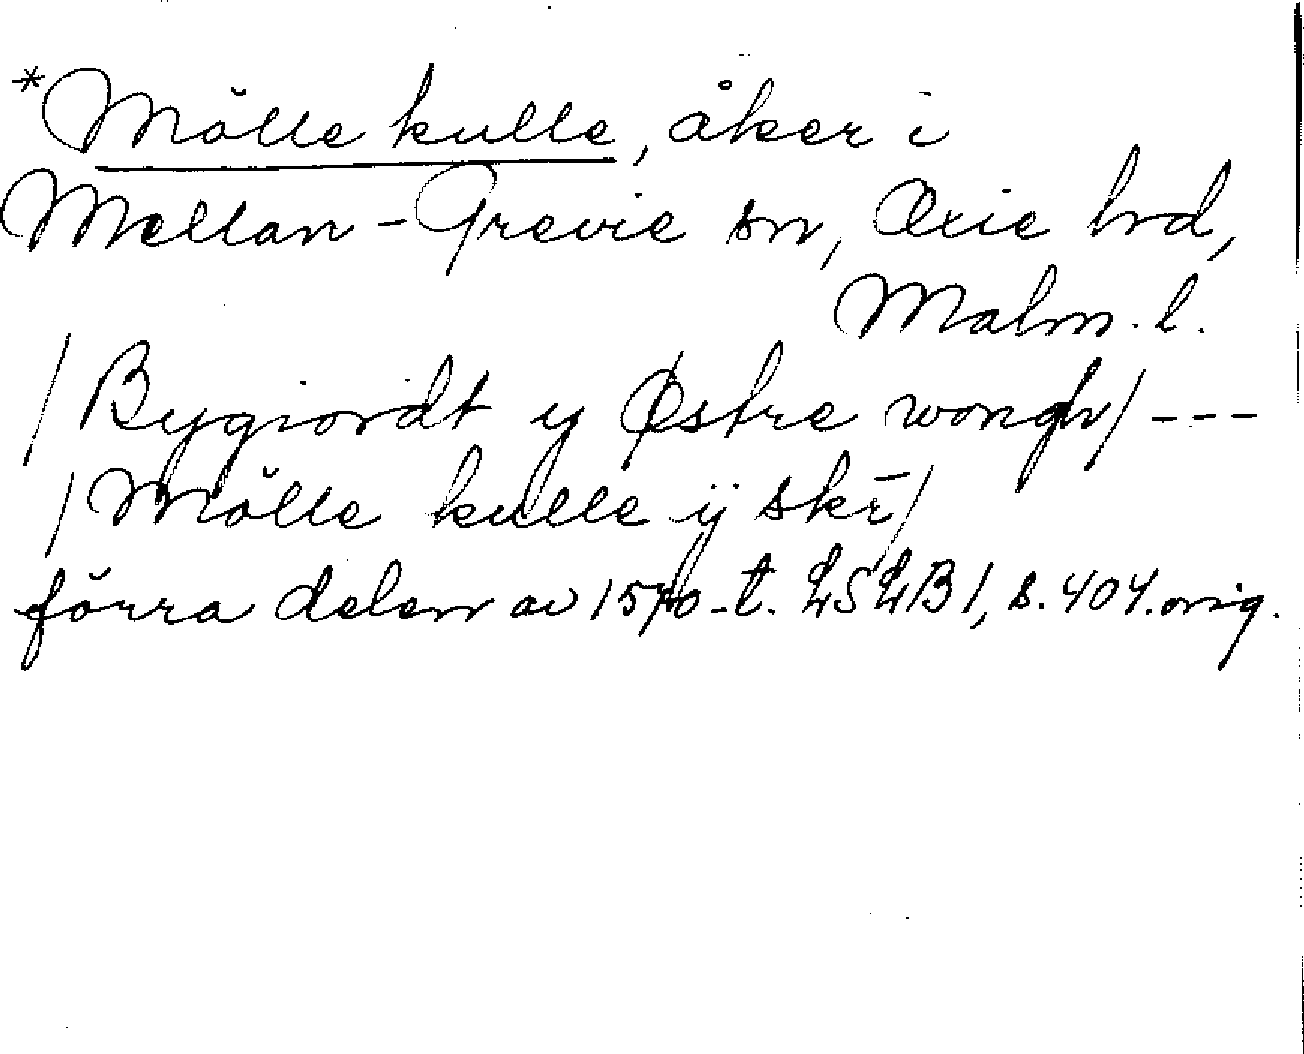 *Mölle kulle, åker i
Mellan-Grevie sn, Oxie hd,
Malm. l.
/Bygiordt y Østre wongh/ ---
/Mölle kulle ÿ skī/
förra delen av 1570-t. LSLB 1, s. 404. orig.